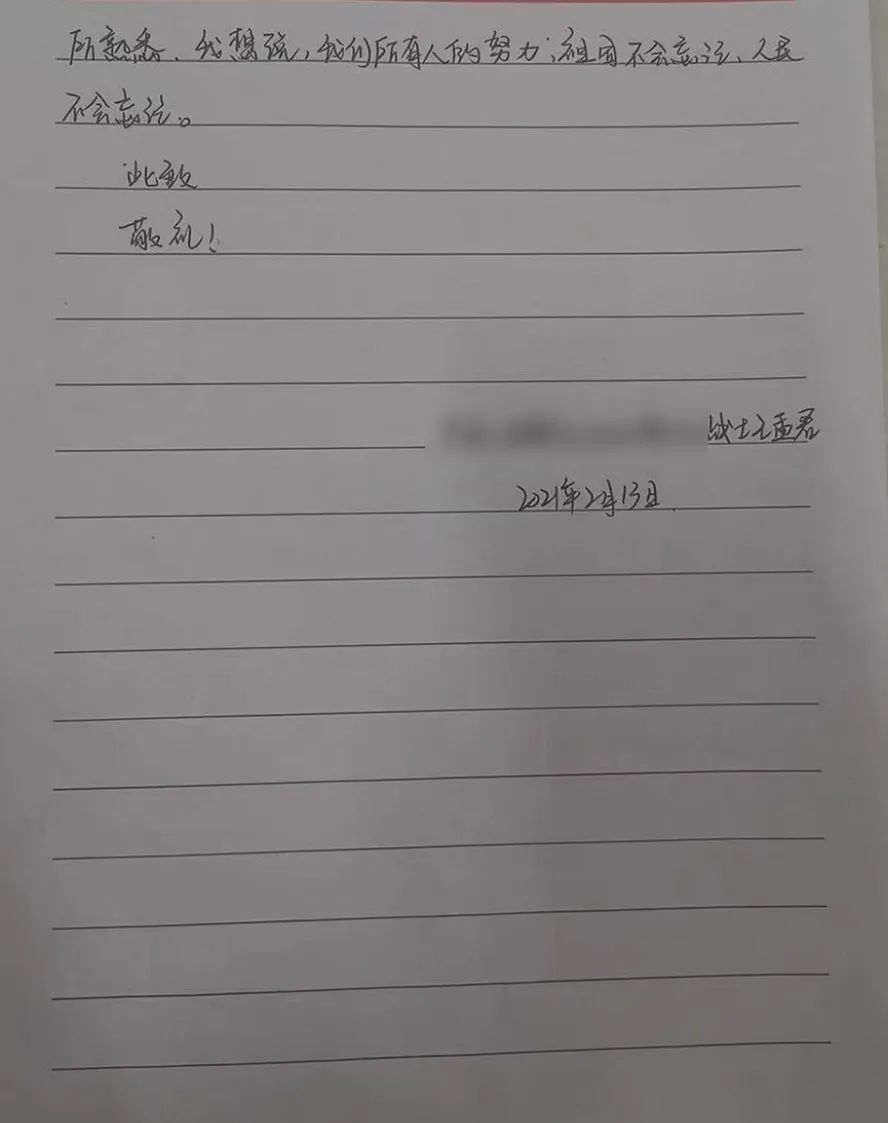 所熟悉、我想说，我们所有人的努力，祖国不会忘记、人民
不会忘记。
此致
敬礼！
战士王孟君
2021年2月13日